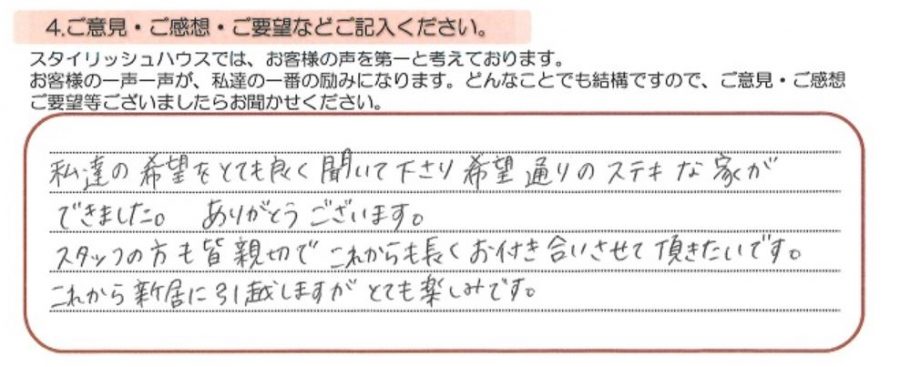 4.ご意見・ご感想・ご要望などご記入ください。
スタイリッシュハウスでは、お客様の声を第一と考えております。
お客様の一声一声が、私達の一番の励みになります。どんなことでも結構ですので、ご意見・ご感想
ご要望等ございましたらお聞かせください。
私達の希望をとても良く聞いて下さり希望通りのステキな家が
できました。 ありがとうございます。
スタッフの方も皆親切でこれからも長くお付き合いさせて頂きたいです。
これから新居に引越しますがとても楽しみです。